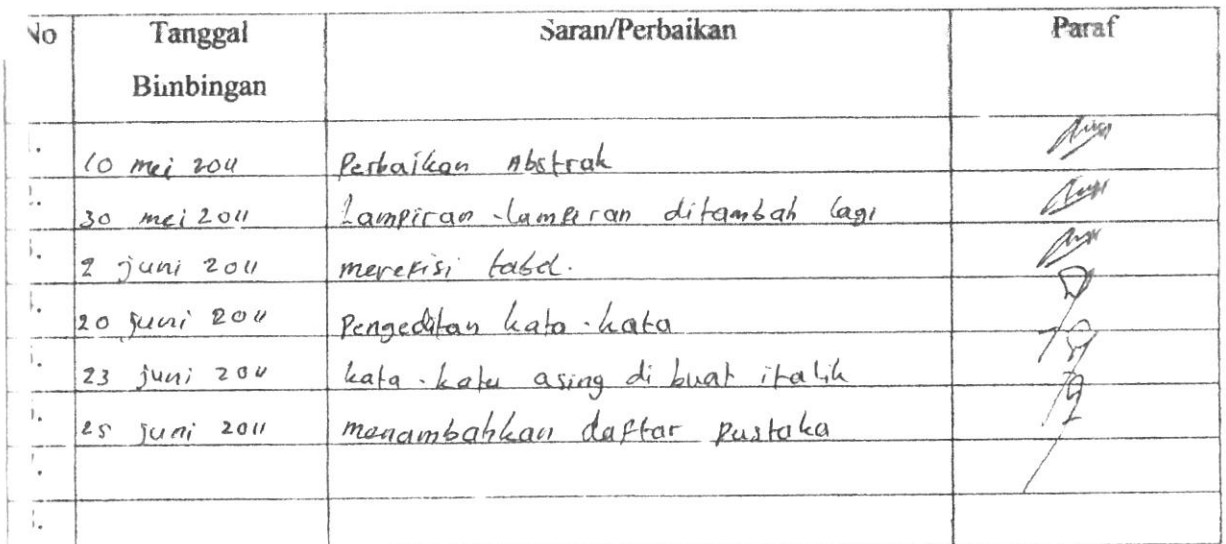 No Tanggal Bimbingan Saran/Perbaikan Paraf
10 mei 2011 Perbaikan Abstrak
30 mei 2011 Lampiran-lampiran ditambah lagi
2 juni 2011 merevisi tabel.
20 juni 2011 Pengeditan kata-kata
23 juni 2011 kata-kata asing di buat italik
25 juni 2011 menambahkan daftar pustaka